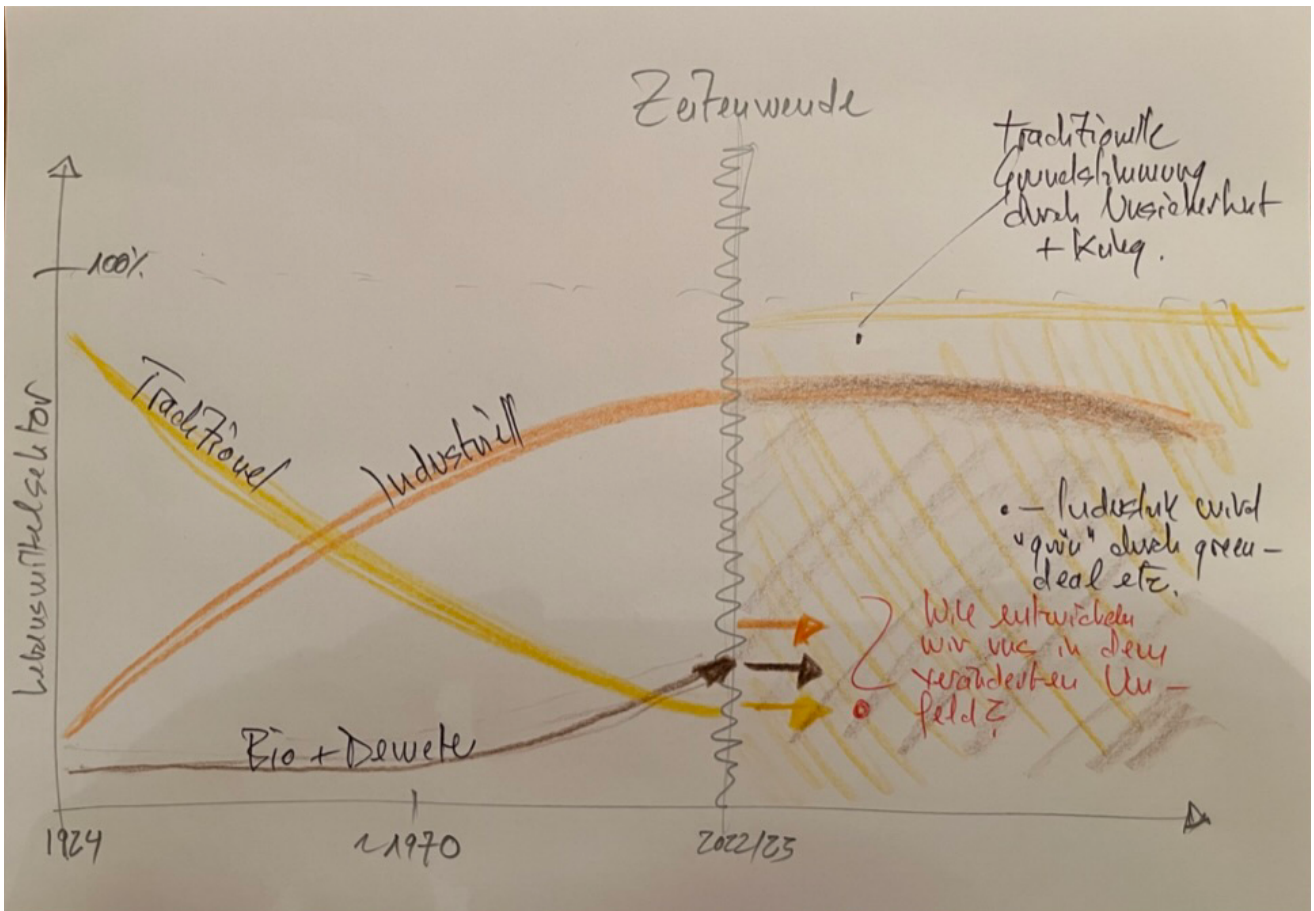 Zeitenwende
traditionelle
Grundstimmung
durch Unsicherheit
+ Krieg.
100%
Lebensmittelsektor
Traditionel
Industriell
• – Industrie wird
"grün" durch green-
deal etc.
Wie entwickeln
wir uns in dem
veränderten Um-
feld?
Bio + Demeter
1924
~1970
2022/23